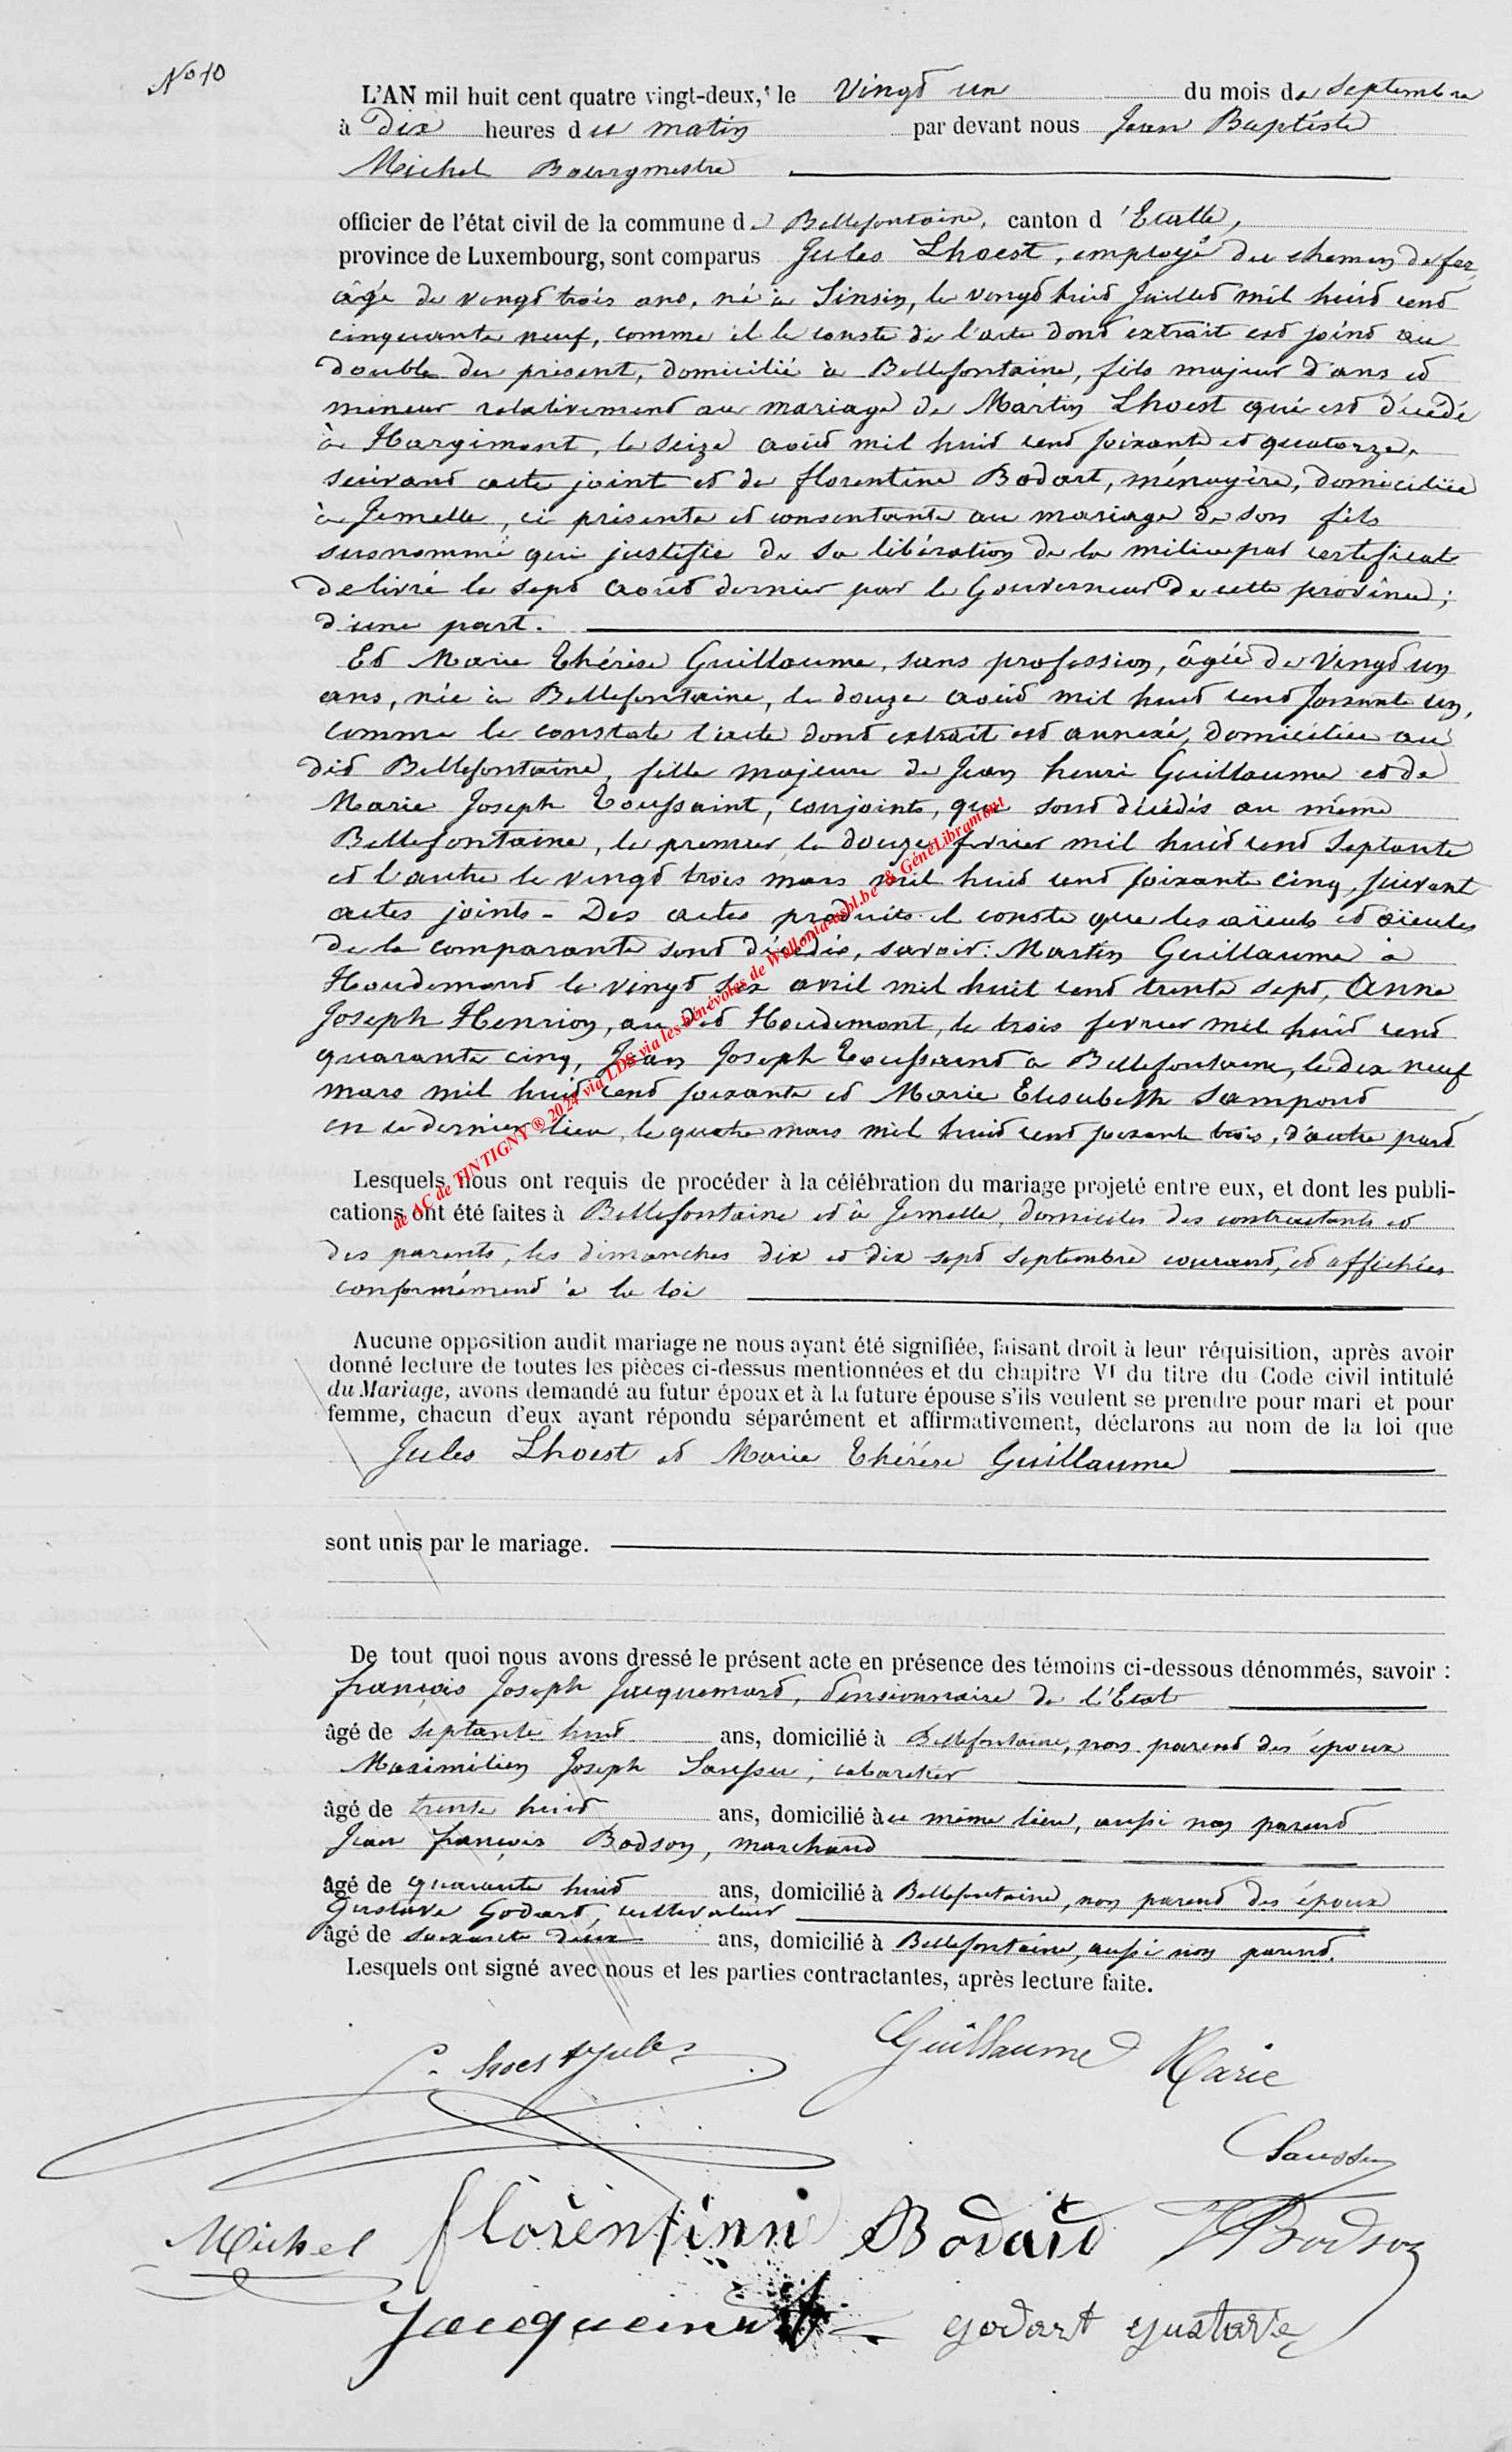 No 10
L'AN mil huit cent quatre vingt-deux, le Vingt un du mois de Septembre
à dix heures du matin par devant nous Jean Baptiste
Michel Bourgmestre
officier de l'état civil de la commune de Bellefontaine, canton d'Etalle,
province de Luxembourg, sont comparus Jules Lhoest, employé du chemin de fer,
âgé de vingt trois ans, né à Sinsin, le vingt huit Juillet mil huit cent
cinquante neuf, comme il le conste de l'acte dont extrait est joint au
double du présent, domicilié à Bellefontaine, fils majeur d'ans et
mineur relativement au mariage de Martin Lhoest qui est décédé
à Hargimont, le seize août mil huit cent soixante et quatorze,
suivant acte joint et de florentine Bodart, ménagère, domiciliée
à Jemelle, ci présente et consentante au mariage de son fils
susnommé qui justifie de sa libération de la milice par certificat
delivré le sept août dernier par le Gouverneur de cette province;
d'une part.
Et Marie Thérèse Guillaume, sans profession, âgée de Vingt un
ans, née à Bellefontaine, le douze août mil huit cent soixante un,
comme le constate l'acte dont extrait est annexé, domiciliée au
dit Bellefontaine, fille majeure de Jean henri Guillaume et de
Marie Joseph Toussaint, conjoints, qui sont décédés au même
Bellefontaine, le premier, le douze fevrier mil huit cent septante
et l'autre le vingt trois mars mil huit cent soixante cinq, suivant
actes joints - Des actes produits il conste que les aïeuls et aïeules
de la comparante sont décédés, savoir: Martin Guillaume à
Houdemont le vingt six avril mil huit cent trente sept, Anne
Joseph Henrion, au dit Houdemont, le trois fevrier mil huit cent
quarante cinq, Jean Joseph Toussaint à Bellefontaine, le dix neuf
mars mil huit cent soixante et Marie Elisabeth Sampont
en ce dernier lieu, le quatre mars mil huit cent soixante trois, d'autre part
de AC de TINTIGNY ® 2024 via LDS via les bénévoles de Wallonia-asbl.be & GénéLibramont
Lesquels nous ont requis de procéder à la célébration du mariage projeté entre eux, et dont les publi-
cations ont été faites à Bellefontaine et à Jemelle, domiciles des contractants et
des parents, les dimanches dix et dix sept Septembre courant, et affichées
conformément à la loi
Aucune opposition audit mariage ne nous ayant été signifiée, faisant droit à leur réquisition, après avoir
donné lecture de toutes les pièces ci-dessus mentionnées et du chapitre VI du titre du Code civil intitulé
du Mariage, avons demandé au futur époux et à la future épouse s'ils veulent se prendre pour mari et pour
femme, chacun d'eux ayant répondu séparément et affirmativement, déclarons au nom de la loi que
Jules Lhoest et Marie Thérèse Guillaume
sont unis par le mariage.
De tout quoi nous avons dressé le présent acte en présence des témoins ci-dessous dénommés, savoir :
françois Joseph Jacquemart, Pensionnaire de l'Etat
âgé de septante huit ans, domicilié à Bellefontaine, non parent des époux
Maximilien Joseph Saussu, cabaretier
âgé de trente huit ans, domicilié à ce même lieu, aussi non parent
Jean françois Bodson, marchand
âgé de quarante huit ans, domicilié à Bellefontaine, non parent des époux
Gustave Godart, cultivateur
âgé de soixante deux ans, domicilié à Bellefontaine, aussi non parent.
Lesquels ont signé avec nous et les parties contractantes, après lecture faite.
Lhoest Jules
Guillaume Marie
Saussu
Michel florentinne Bodard Bodson
Jacquemart godart gustave